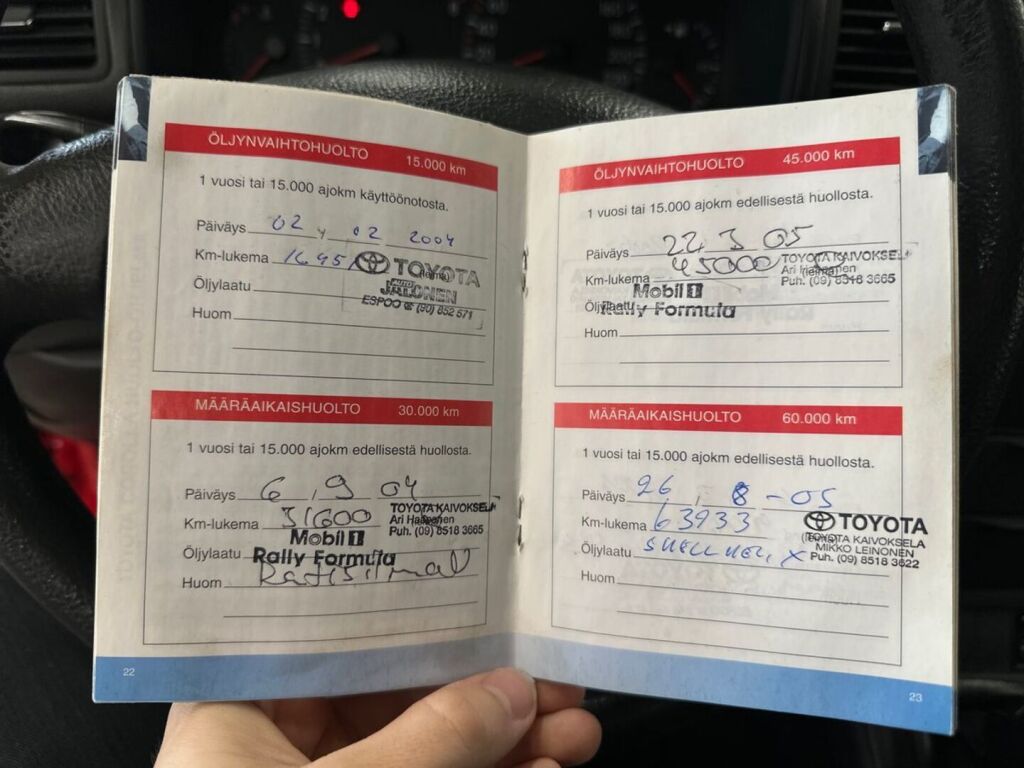 ÖLJYNVAIHTOHUOLTO 15.000 km
1 vuosi tai 15.000 ajokm käyttöönotosta.
Päiväys 02 02 2004
Km-lukema
TOYOTA
AUTO
JALONEN
ESPOO ☎ (90) 852 571
Öljylaatu
Huom
MÄÄRÄAIKAISHUOLTO 30.000 km
1 vuosi tai 15.000 ajokm edellisestä huollosta.
Päiväys 6 , 9 04
Km-lukema 31600
TOYOTA KAIVOKSELA
Ari
Puh. (09) 8518 3665
Mobil 1
Öljylaatu Rally Formula
Huom
22
ÖLJYNVAIHTOHUOLTO 45.000 km
1 vuosi tai 15.000 ajokm edellisestä huollosta.
Päiväys 22 3 05
Km-lukema 45000
TOYOTA KAIVOKSELA
Ari
Puh. (09) 8518 3665
Mobil 1
Öljylaatu Rally Formula
Huom
MÄÄRÄAIKAISHUOLTO 60.000 km
1 vuosi tai 15.000 ajokm edellisestä huollosta.
Päiväys 26 , 8 - 05
Km-lukema 63933
TOYOTA
TOYOTA KAIVOKSELA
MIKKO LEINONEN
Puh. (09) 8518 3622
Öljylaatu SHELL HELIX
Huom
23